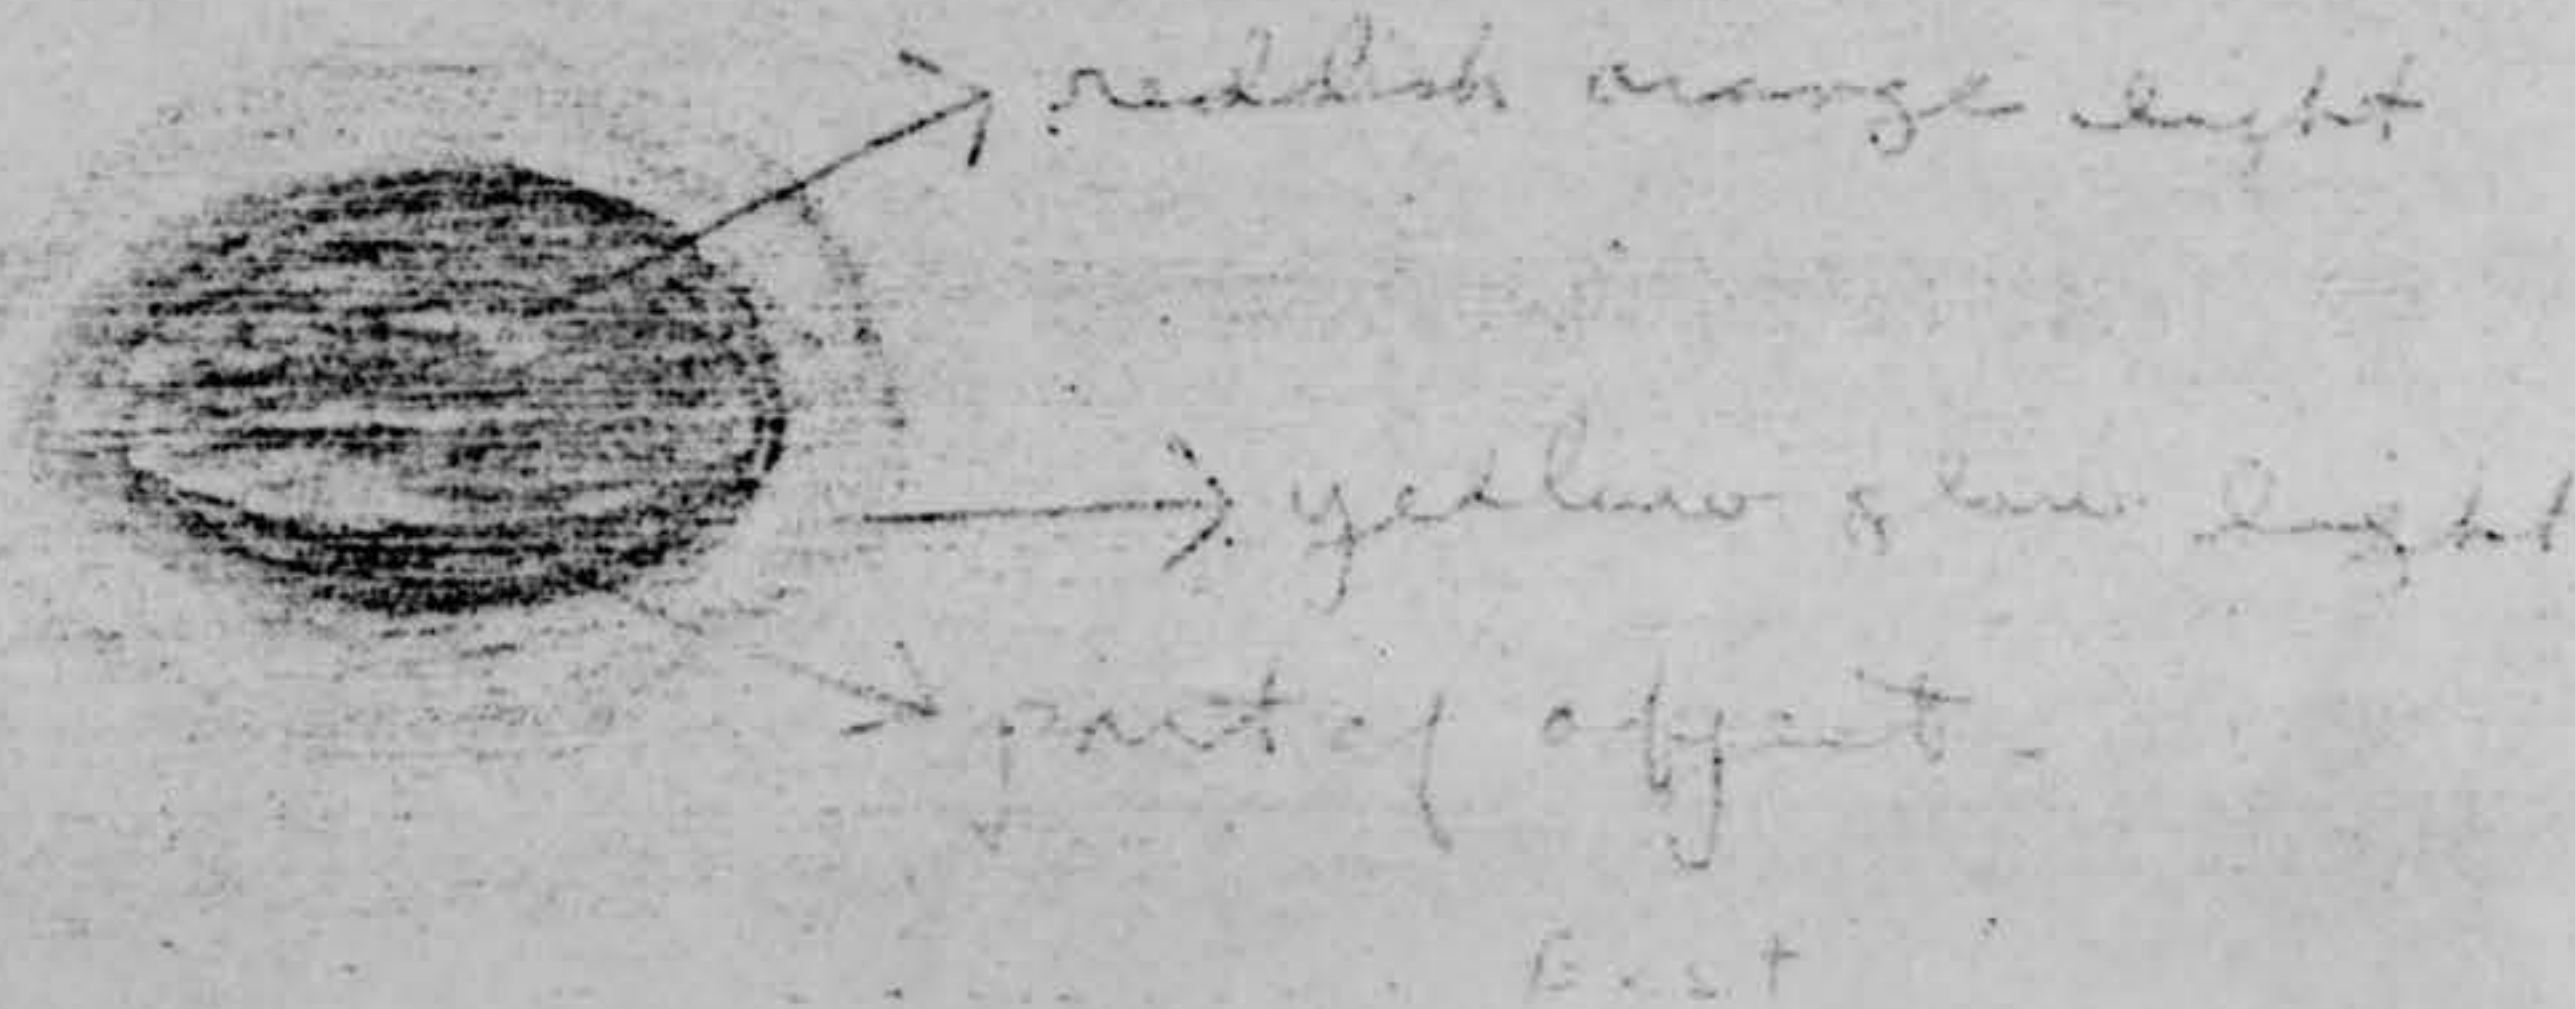 reddish orange light
yellow glow light
part of object.
East